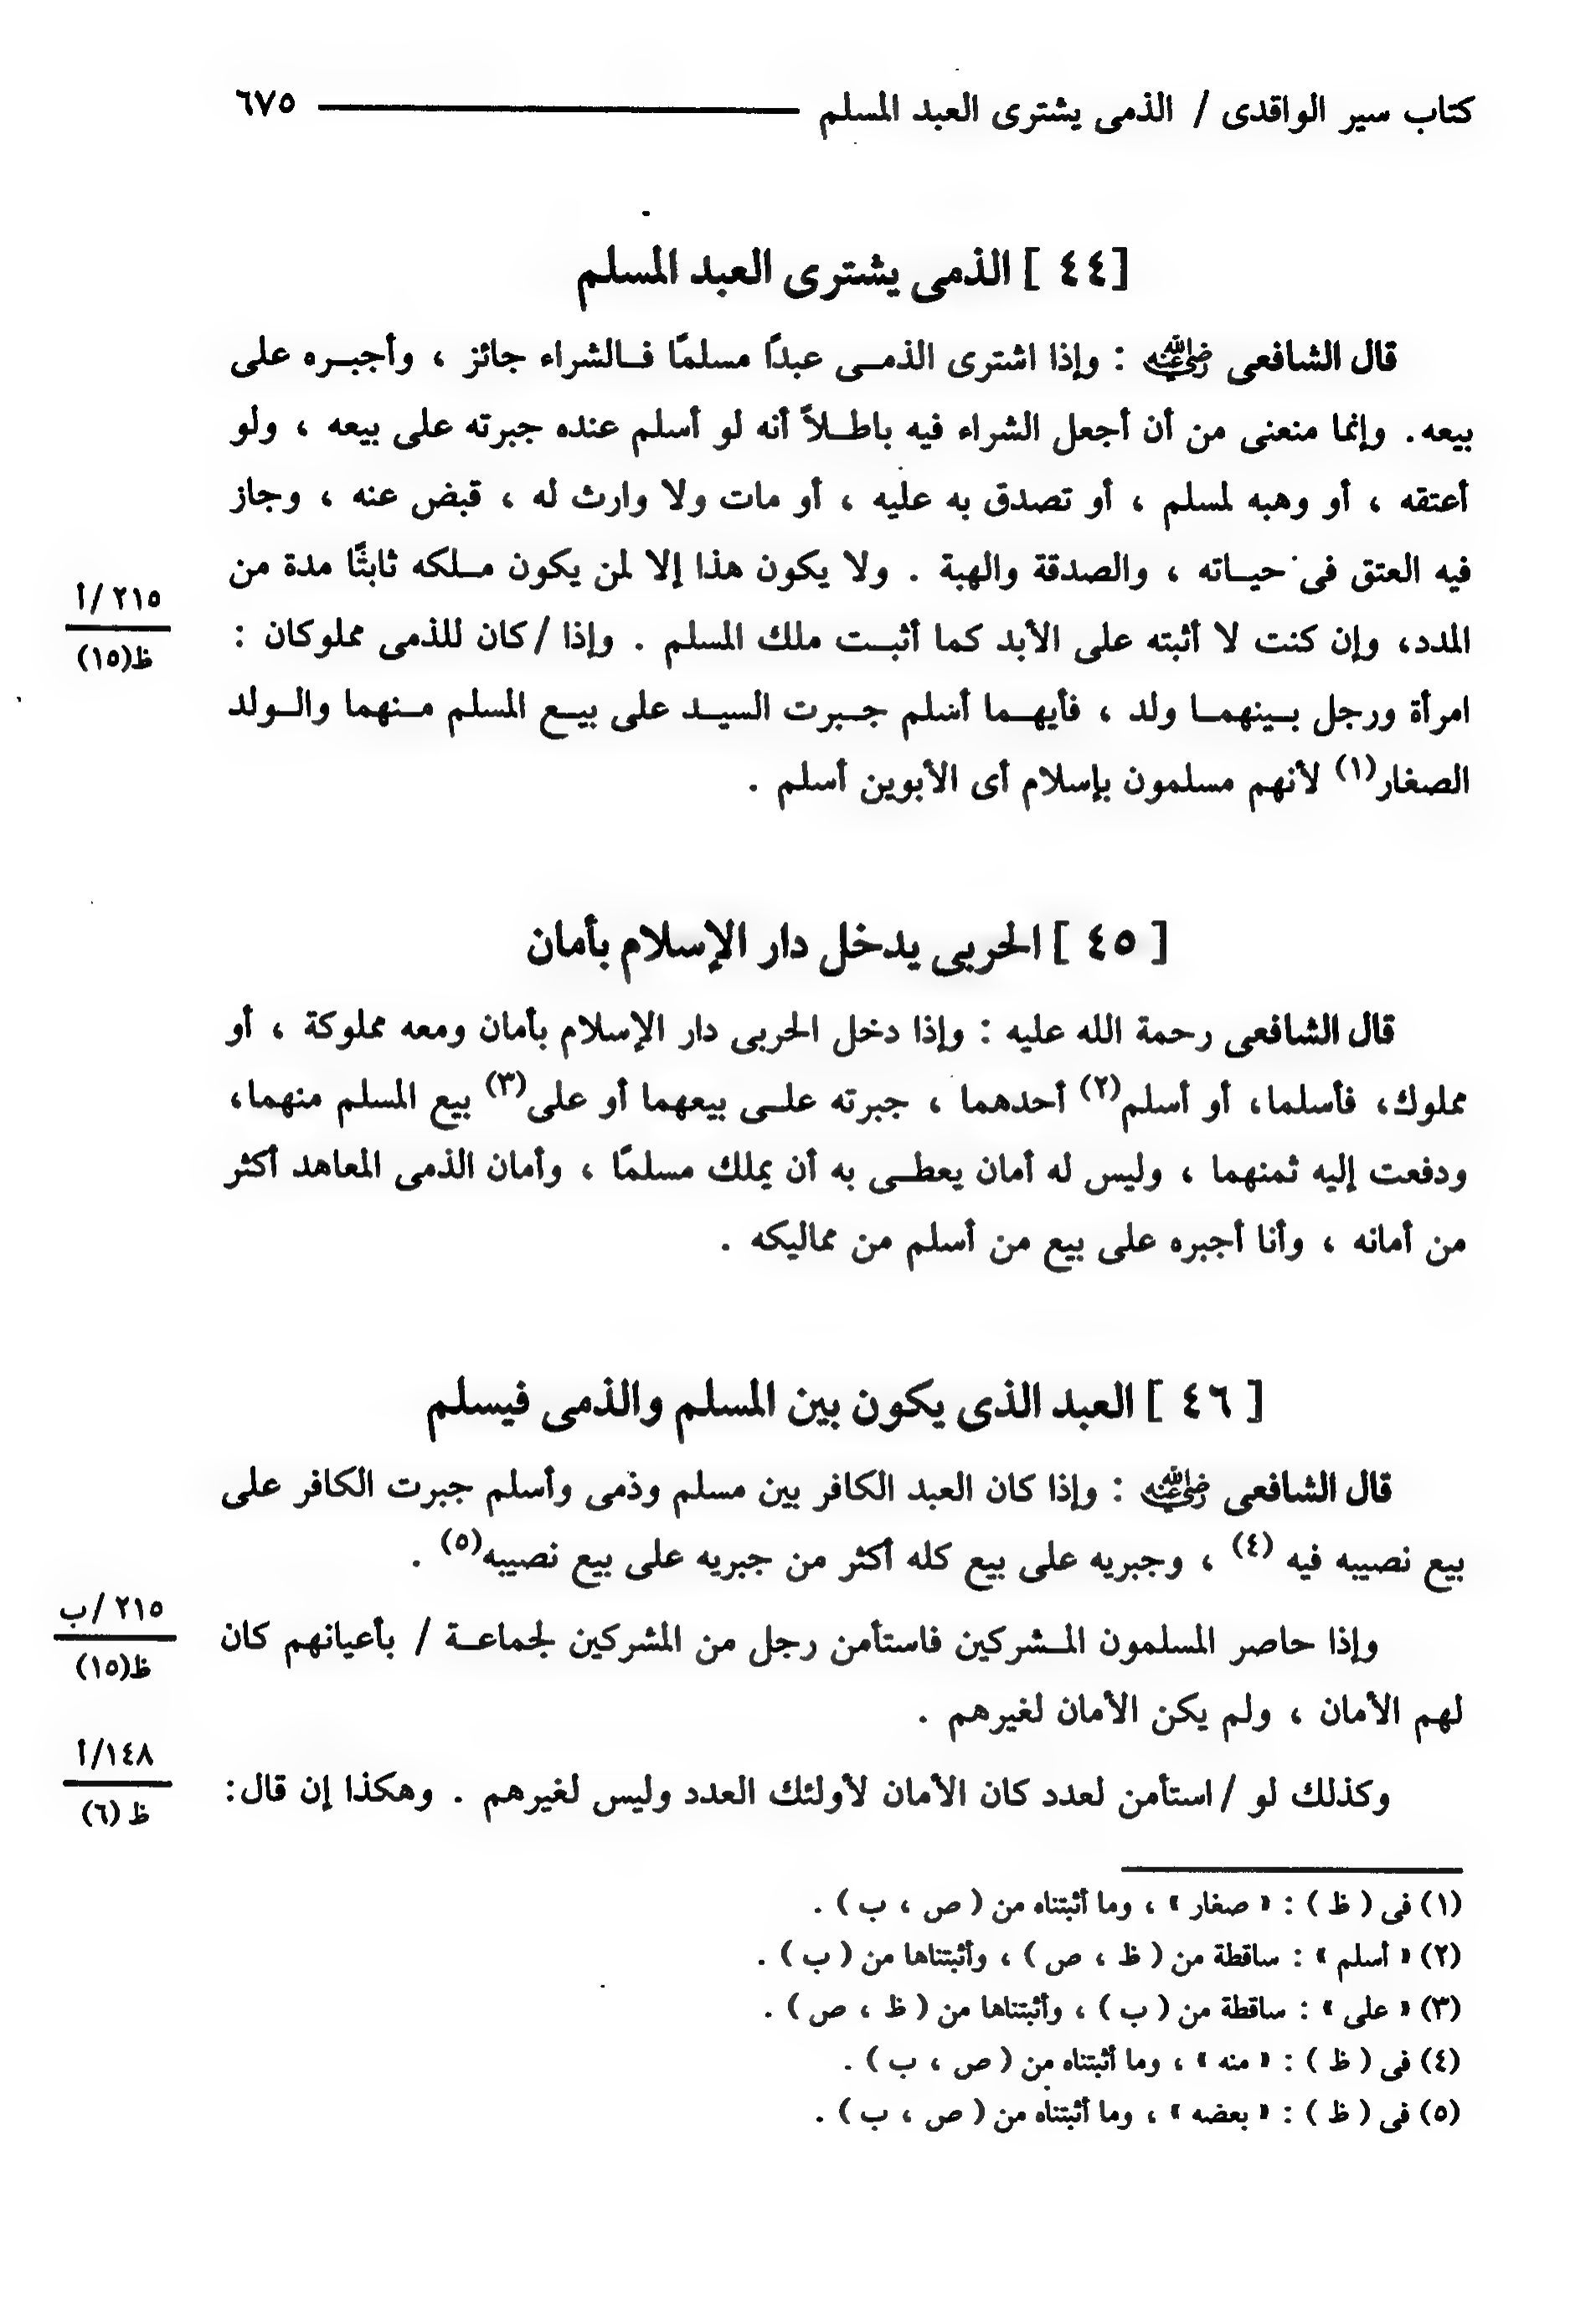 كتاب سير الواقدى / الذمى يشترى العبد المسلم ٦٧٥
[٤٤ ] الذمى يشترى العبد المسلم
قال الشافعى رضي الله عنه : وإذا اشترى الذمى عبدًا مسلمًا فالشراء جائز ، وأجبره على
بيعه. وإنما منعنى من أن أجعل الشراء فيه باطلاً أنه لو أسلم عنده جبرته على بيعه ، ولو
أعتقه ، أو وهبه لمسلم ، أو تصدق به عليه ، أو مات ولا وارث له ، قبض عنه ، وجاز
فيه العتق فى حياته ، والصدقة والهبة . ولا يكون هذا إلا لمن يكون ملكه ثابتًا مدة من
٢١٥ /أ
المدد، وإن كنت لا أثبته على الأبد كما أثبت ملك المسلم . وإذا /كان للذمى مملوكان :
ظ(١٥)
امرأة ورجل بينهما ولد ، فأيهما أسلم جبرت السيد على بيع المسلم منهما والولد
الصغار(١) لأنهم مسلمون بإسلام أى الأبوين أسلم .
[ ٤٥ ] الحربى يدخل دار الإسلام بأمان
قال الشافعى رحمة الله عليه : وإذا دخل الحربى دار الإسلام بأمان ومعه مملوكة ، أو
مملوك، فأسلما، أو أسلم(٢) أحدهما ، جبرته على بيعهما أو على(٣) بيع المسلم منهما،
ودفعت إليه ثمنهما ، وليس له أمان يعطى به أن يملك مسلمًا ، وأمان الذمى المعاهد أكثر
من أمانه ، وأنا أجبره على بيع من أسلم من مماليكه .
[ ٤٦ ] العبد الذى يكون بين المسلم والذمى فيسلم
قال الشافعى رضي الله عنه : وإذا كان العبد الكافر بين مسلم وذمى وأسلم جبرت الكافر على
بيع نصيبه فيه (٤) ، وجبريه على بيع كله أكثر من جبريه على بيع نصيبه(٥) .
٢١٥ /ب
وإذا حاصر المسلمون المشركين فاستأمن رجل من المشركين لجماعة / بأعيانهم كان
ظ(١٥)
لهم الأمان ، ولم يكن الأمان لغيرهم .
١٤٨/أ
وكذلك لو /استأمن لعدد كان الأمان لأولئك العدد وليس لغيرهم . وهكذا إن قال:
ظ (٦)
(١) فى ( ظ ) : « صغار » ، وما أثبتناه من ( ص ، ب ) .
(٢) « أسلم » : ساقطة من ( ظ ، ص ) ، وأثبتناها من ( ب ) .
(٣) « على » : ساقطة من ( ب ) ، وأثبتناها من ( ظ ، ص ) .
(٤) فى ( ظ ) : « منه » ، وما أثبتناه من ( ص ، ب ) .
(٥) فى ( ظ ) : « بعضه » ، وما أثبتناه من ( ص ، ب ) .